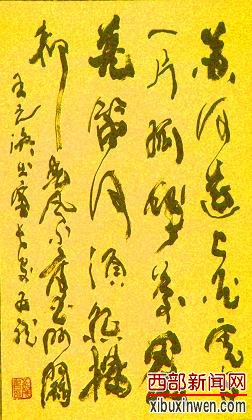 黄河远上白云间
一片孤城万仞山
羌笛何须怨杨
柳春风不度玉门关
王之涣出塞
西部新闻网
xibuxinwen.com